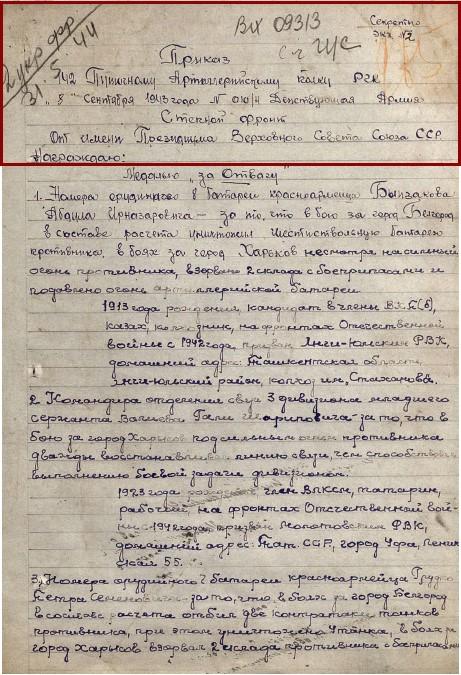 Вх 09313
Секретно
Экз №2
2 укр фр.
31 5 44
Приказ
142 Пушечному Артиллерийскому полку РГК
"8" Сентября 1943 года № 010/н Действующая Армия
Степной фронт
От имени Президиума Верховного Совета Союза ССР
Награждаю:
Медалью "За Отвагу"
1. Номера орудийного 8 батареи красноармейца
Абдула Ирназаровича — за то, что в бою за город Белгород
в составе расчета уничтожил шестиствольную батарею
противника, в боях за город Харьков несмотря на сильный
огонь противника, взорвано 2 склада с боеприпасами и
подавлено огонь артиллерийской батареи.
1913 года рождения, кандидат в члены ВКП(б),
казах, колхозник, на фронтах Отечественной
войны с 1942 года, призван Янги-Юльским РВК,
домашний адрес: Ташкентская область,
Янги-юльский район, колхоз им. Стаханова.
2. Командира отделения связи 3 дивизиона младшего
сержанта Гали Шариповича — за то, что в
бою за город Харьков под сильным огнем противника
дважды восстанавливал линию связи, чем способствовал
выполнению боевой задачи дивизионом.
1923 года рождения, член ВЛКСМ, татарин,
рабочий, на фронтах Отечественной вой-
ны с 1942 года, призван Молотовским РВК,
домашний адрес: ССР, город Уфа,
55.
3. Номера орудийного 7 батареи красноармейца
Петра Семеновича — за то, что в боях за город Белгород
в составе расчета отбил две контратаки танков
противника, при этом уничтожено 4 танка, в боях за
город Харьков взорвал 2 склада противника с боеприпасами